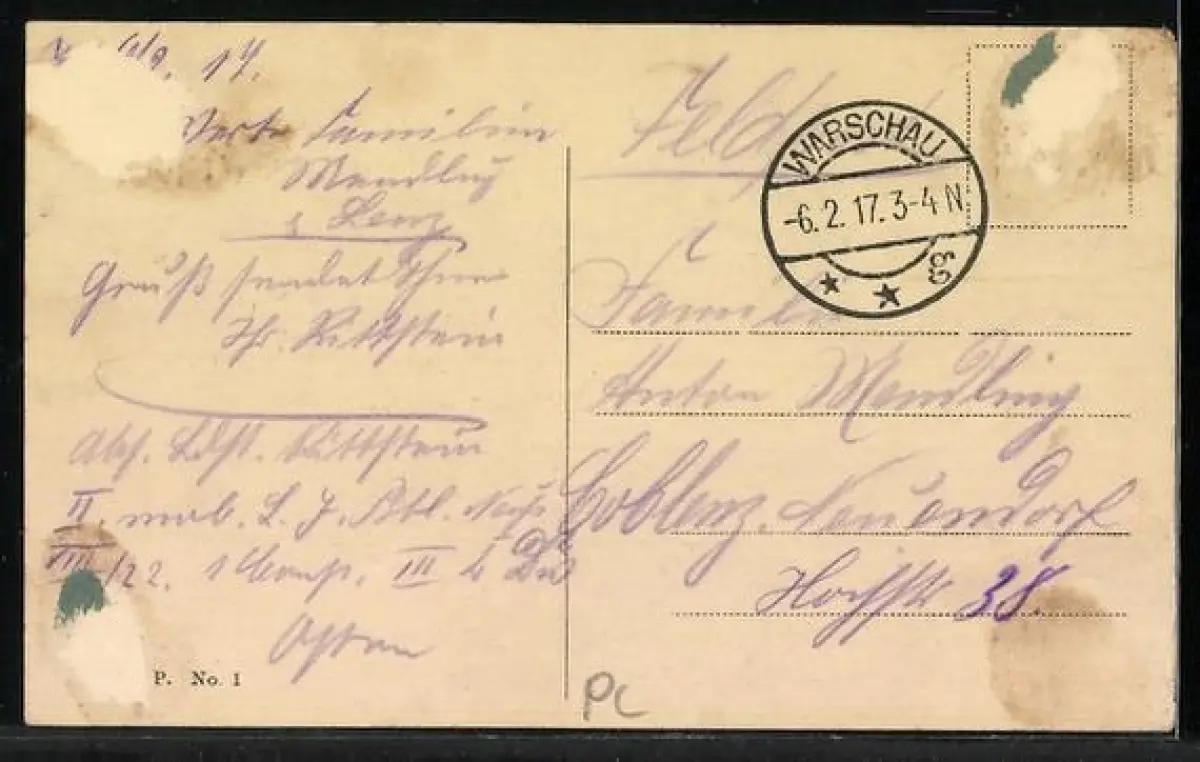 17.
Werte Familien
Mendling
& Lenz
Gruß sendet Ihnen
Ihr. Rittstein
Abs. Ldst. Rittstein
II. mob. L. I. Btl.
VIII/22. 1 Comp. III
Osten
P. No. 1
Feld
WARSCHAU
-6.2.17.3-4 N
Familie
Anton Mendling
Coblenz. Neuendorf
Hochstr 38.
PC